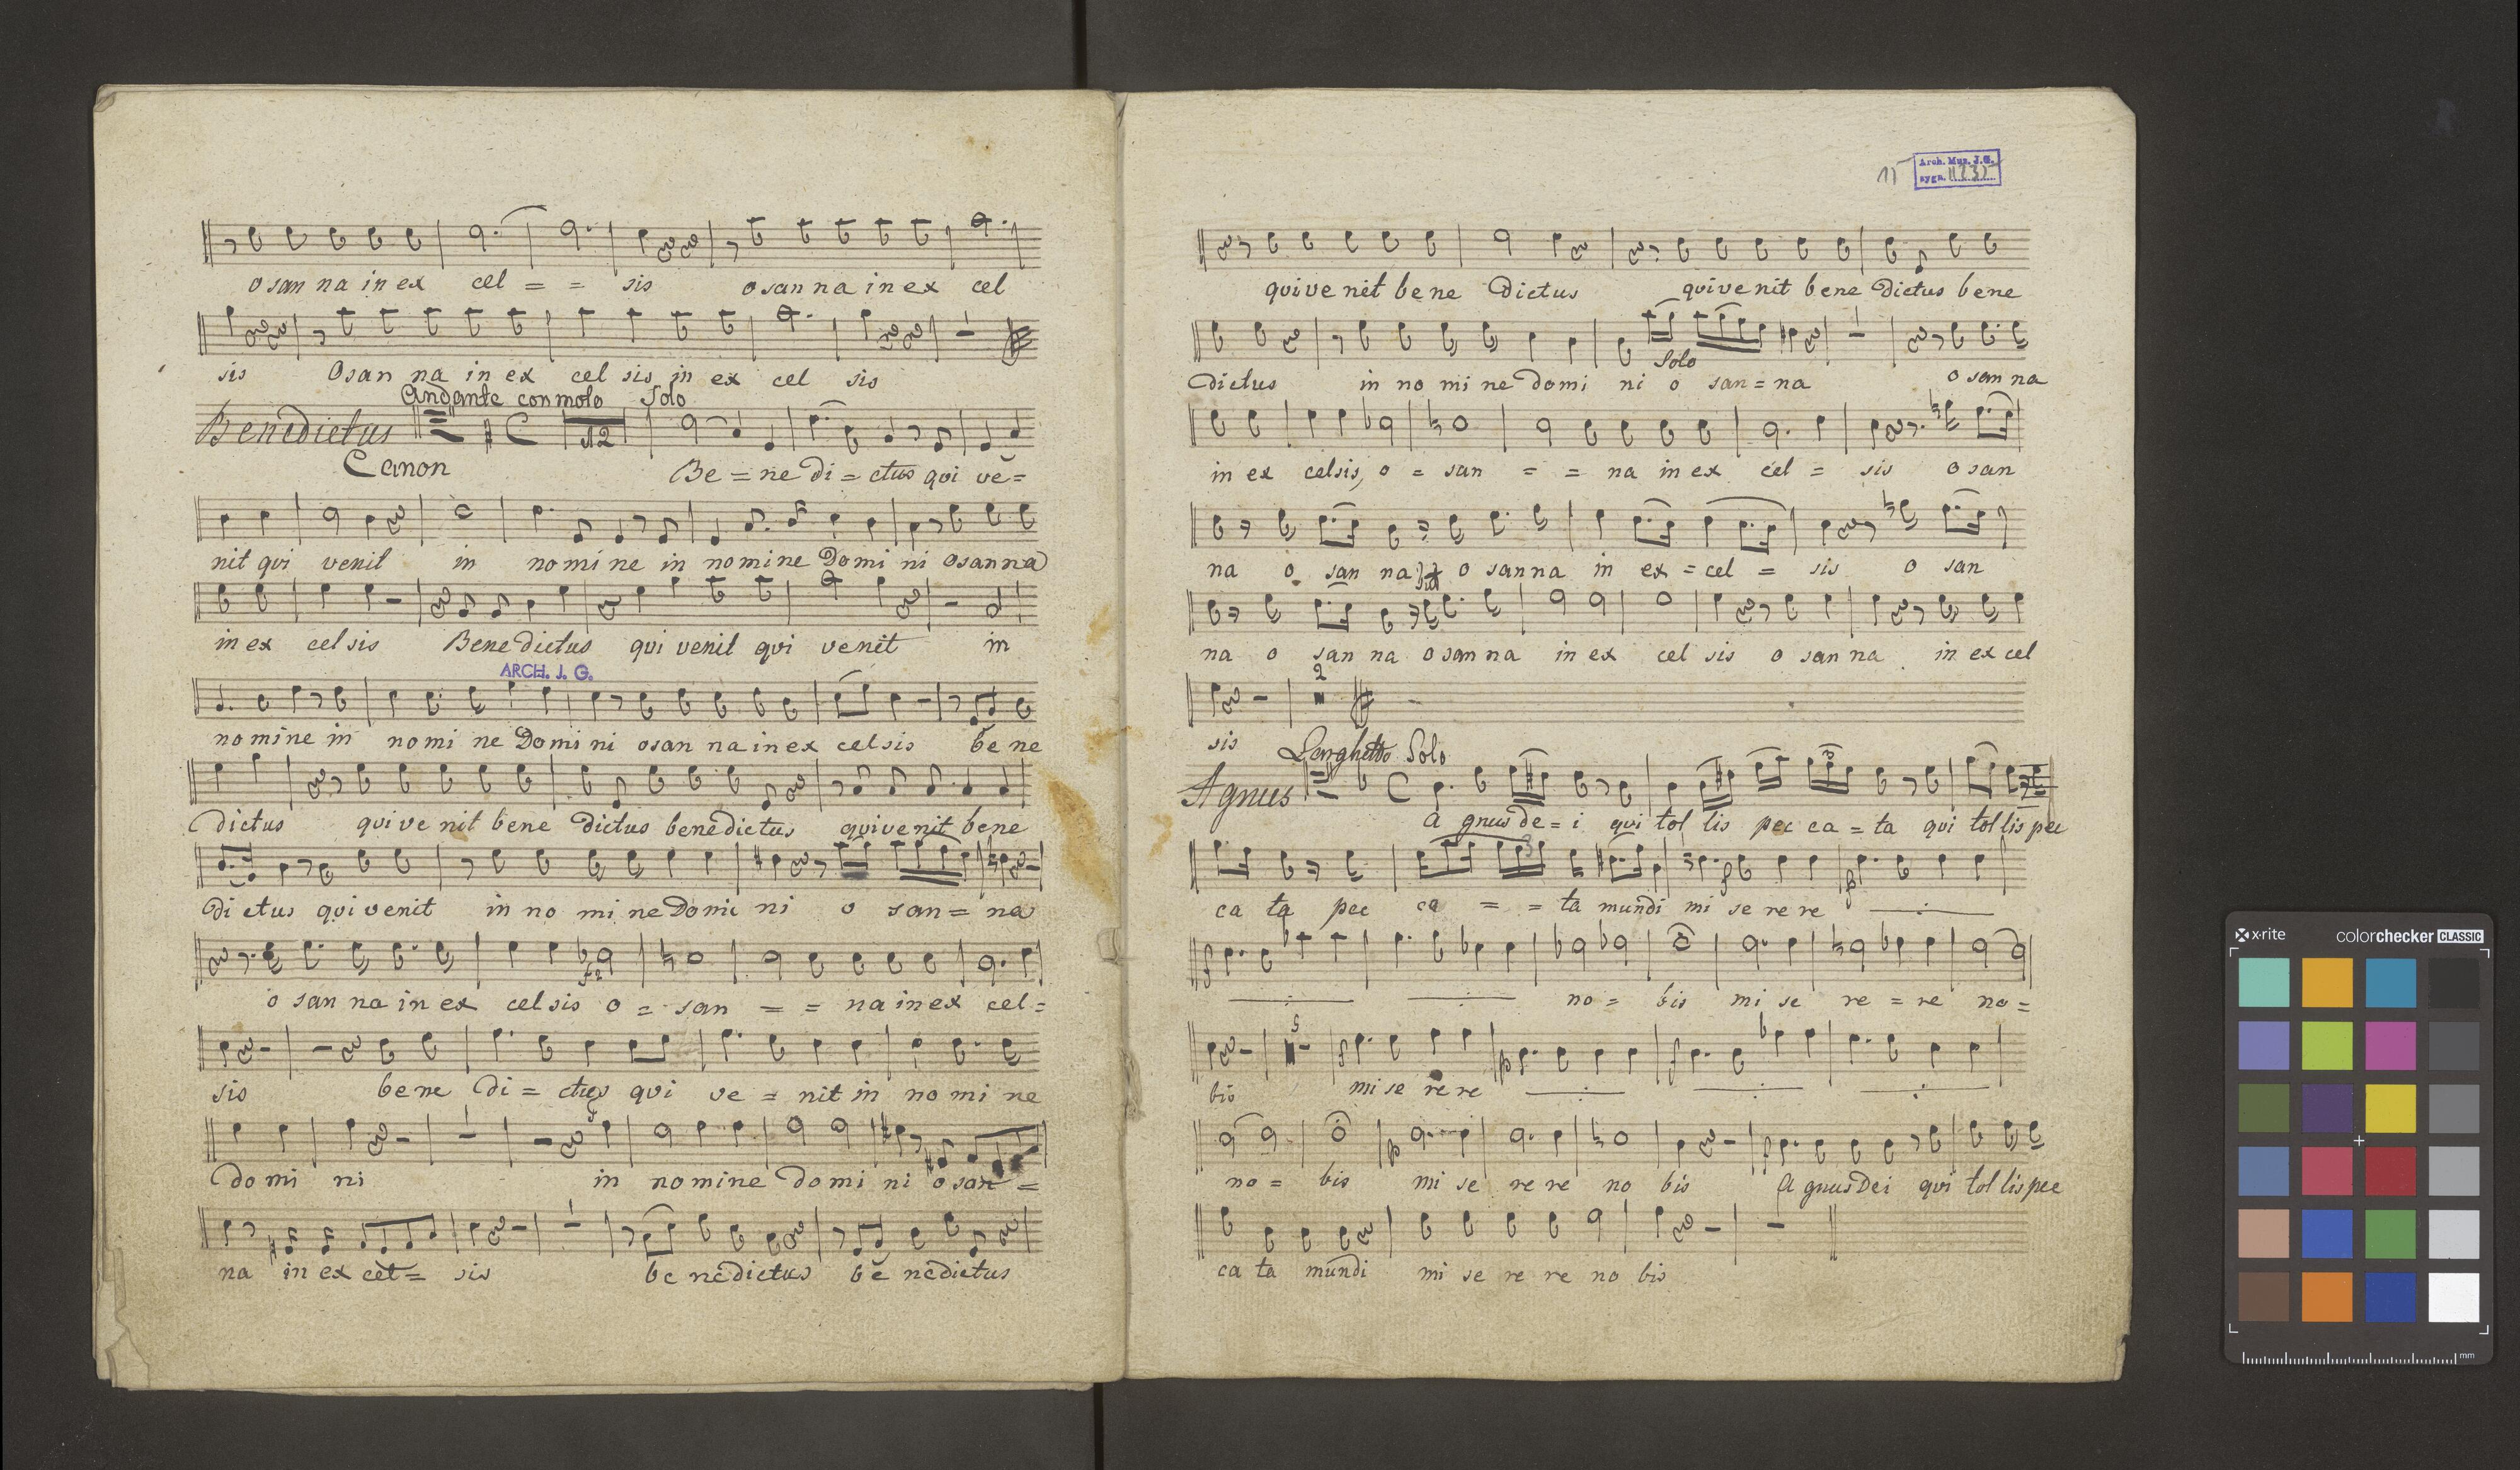 o san na in ex cel = = sis o san na in ex cel
sis Osan na in ex cel sis in ex cel sis
Andante con moto Solo
Benedictus 12
Canon Be = ne di = ctus qui ve =
nit qui venit in no mi ne in no mi ne Do mi ni Osanna
in ex cel sis Bene dictus qui venit qui venit in
ARCH. J. G.
no mi ne in no mi ne Domi ni osan na in ex cel sis be ne
dictus qui ve nit bene dictus benedictus qui ve nit bene
di ctus qui venit in no mi ne Domi ni o san = na
o san na in ex cel sis o = san = = na in ex cel =
sis bene di = ctus qui ve = nit in no mi ne
do mi ni in no mine do mi ni o san =
na in ex cel = sis be ne dictus be ne dictus
15 Arch. Muz. J.G.
sygn.
qui ve nit be ne dictus qui ve nit bene dictus bene
Solo
dictus in no mi ne domi ni o san = na o san na
in ex celsis, o = san = = na in ex cel = sis o san
na o san na o san na in ex = cel = sis o san
na o san na o san na in ex cel sis o san na in ex cel
2
sis Larghetto Solo
Agnus
3
a gnus de = i qui tol lis pec ca = ta qui tol lis pec
3
ca ta pec ca = = ta mundi mi se re re
no = bis mi se re = re no =
5
bis mi se re re
no = bis mi se re re no bis A gnus Dei qui tol lis pec
ca ta mundi mi se re re no bis
x-rite colorchecker CLASSIC
mm